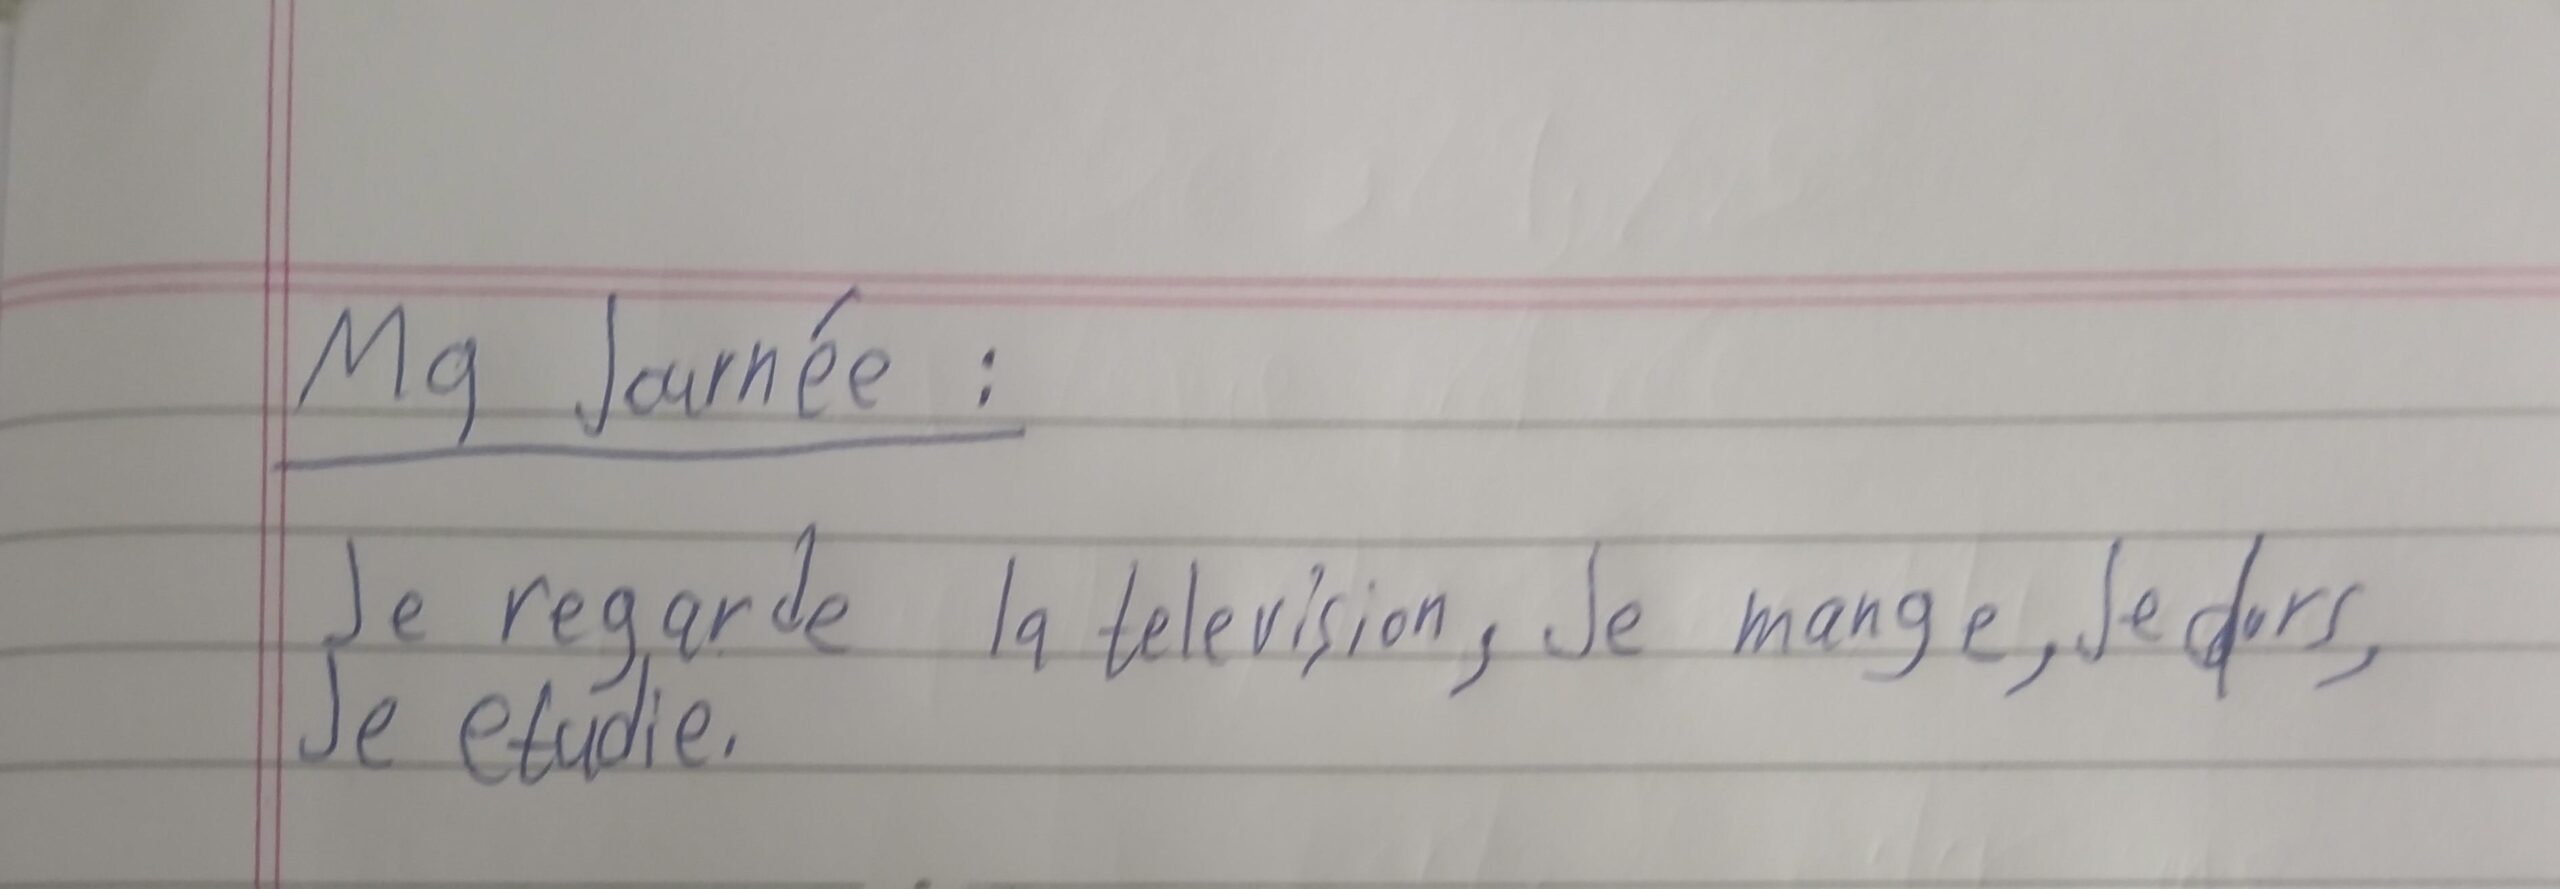 Ma Journée :
Je regarde la television, Je mange, Je dors,
Je etudie.